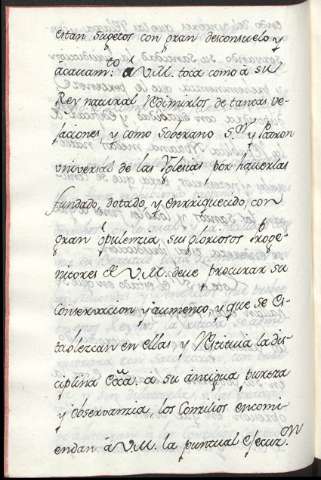 estan sugetos con gran desconsuelo y
acatam.to a V.M. toca como a su
Rey natural redimirlos de tantas ve-
jaciones, y como soberano S.or y Patron
universal de las Yglesias por haverlas
fundado, dotado, y enrriquecido, con
gran opulenzia, sus gloriosos Proge-
nitores el V.M. deve procurar su
conservacion y aumento, y que se es-
tablezcan en ellas, y restituia la dis-
ciplina Ecca. á su antigua pureza
y observanzia, los Conzilios encomi-
endan á V.M. la puntual execuz.on